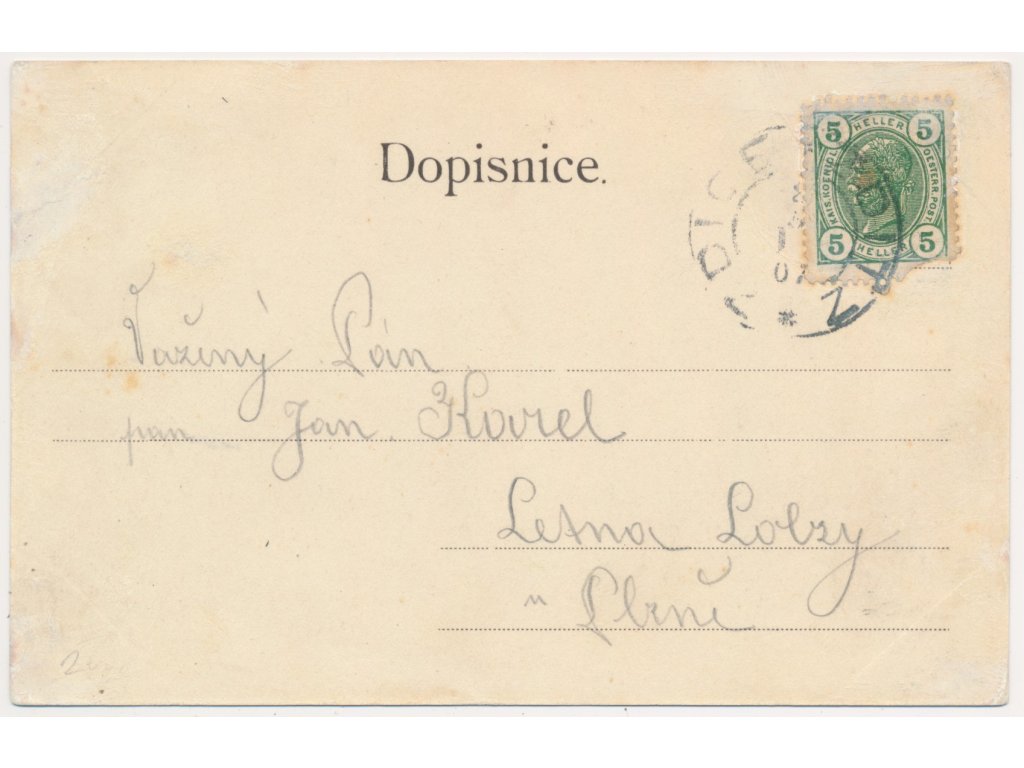 Dopisnice.
5 HELLER 5
KAIS. KOENIGL. OESTERR. POST.
5 HELLER 5
07
Vážený Pán
pan Jan Karel
Letna Lobzy
u Plzně